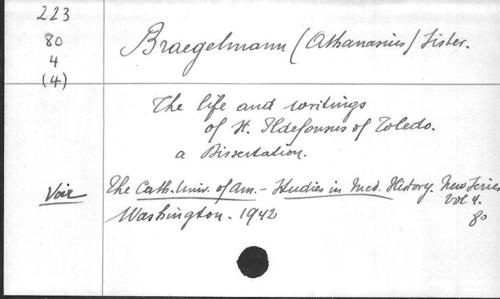 223
80
4
(4)
Braegelmann (Athanasius) Sister.
The life and writings
of St. Ildefonsus of Toledo.
a Dissertation.
Voir
The Cath. Univ. of Am. - Studies in Med. History. New Series
Vol 4.
Washington - 1942
80